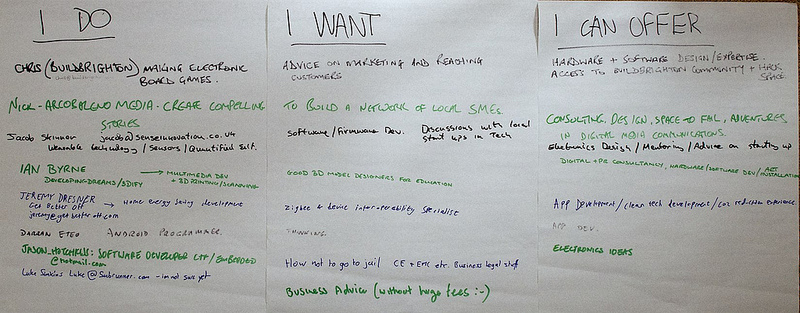 I DO
CHRIS (BUILDBRIGHTON) MAKING ELECTRONIC
BOARD GAMES.
NICK - MEDIA - CREATE COMPELLING
STORIES
Jacob Skinner jacob@senseinnovation.co.uk
Wearable technology / Sensors / Quantified Self.
IAN BYRNE → MULTIMEDIA DEV
DEVELOPINGDREAMS/3DIFY + 3D PRINTING/SCANNING
JEREMY DRESNER → Home energy saving development
Get Better Off
DARRAN ANDROID PROGRAMMER.
JASON_HOTCHKISS: SOFTWARE DEVELOPER C++/EMBEDDED
@hotmail.com
Luke - im not sure yet
I WANT
ADVICE ON MARKETING AND REACHING
CUSTOMERS
TO BUILD A NETWORK OF LOCAL SMES.
Software/Firmware Dev. Discussions with local
start ups in Tech
GOOD 3D MODEL DESIGNERS FOR EDUCATION
Zigbee & device interoperability specialise
THINKING.
How not to go to jail CE + EMC etc. Business legal stuff
Business Advice (without huge fees :-)
I CAN OFFER
HARDWARE + SOFTWARE DESIGN/EXPERTISE.
ACCESS TO BUILDBRIGHTON COMMUNITY + HACK
SPACE.
CONSULTING, DESIGN, SPACE TO FAIL, ADVENTURES
IN DIGITAL MEDIA COMMUNICATIONS.
Electronics Design / Mentoring / Advice on starting up
DIGITAL + PR CONSULTANCY, HARDWARE/SOFTWARE DEV/ART
INSTALLATION
App Development/clean tech development/CO2 reduction experience.
APP DEV.
ELECTRONICS IDEAS